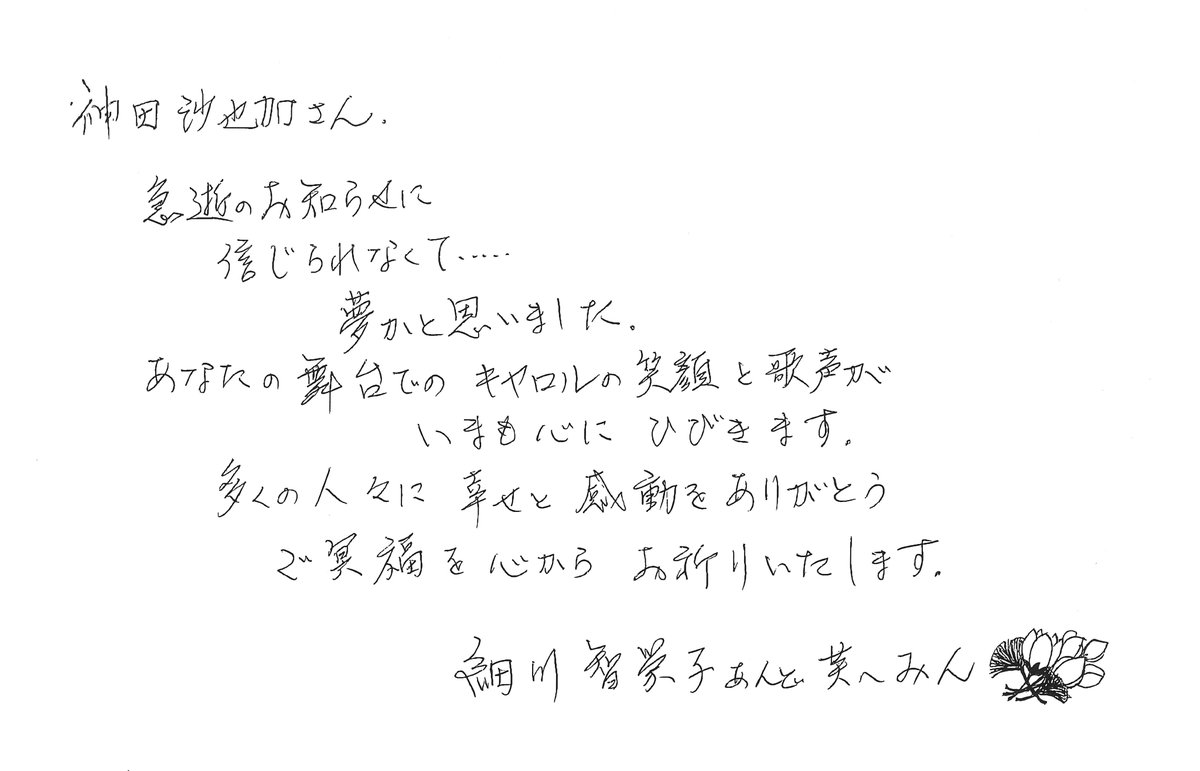 神田沙也加さん.
急逝のお知らせに
信じられなくて……
夢かと思いました。
あなたの舞台での キャロルの笑顔と歌声が
いまも心に ひびきます。
多くの人々に 幸せと感動をありがとう
ご冥福を心から お祈りいたします。
細川智栄子あんど芙〜みん